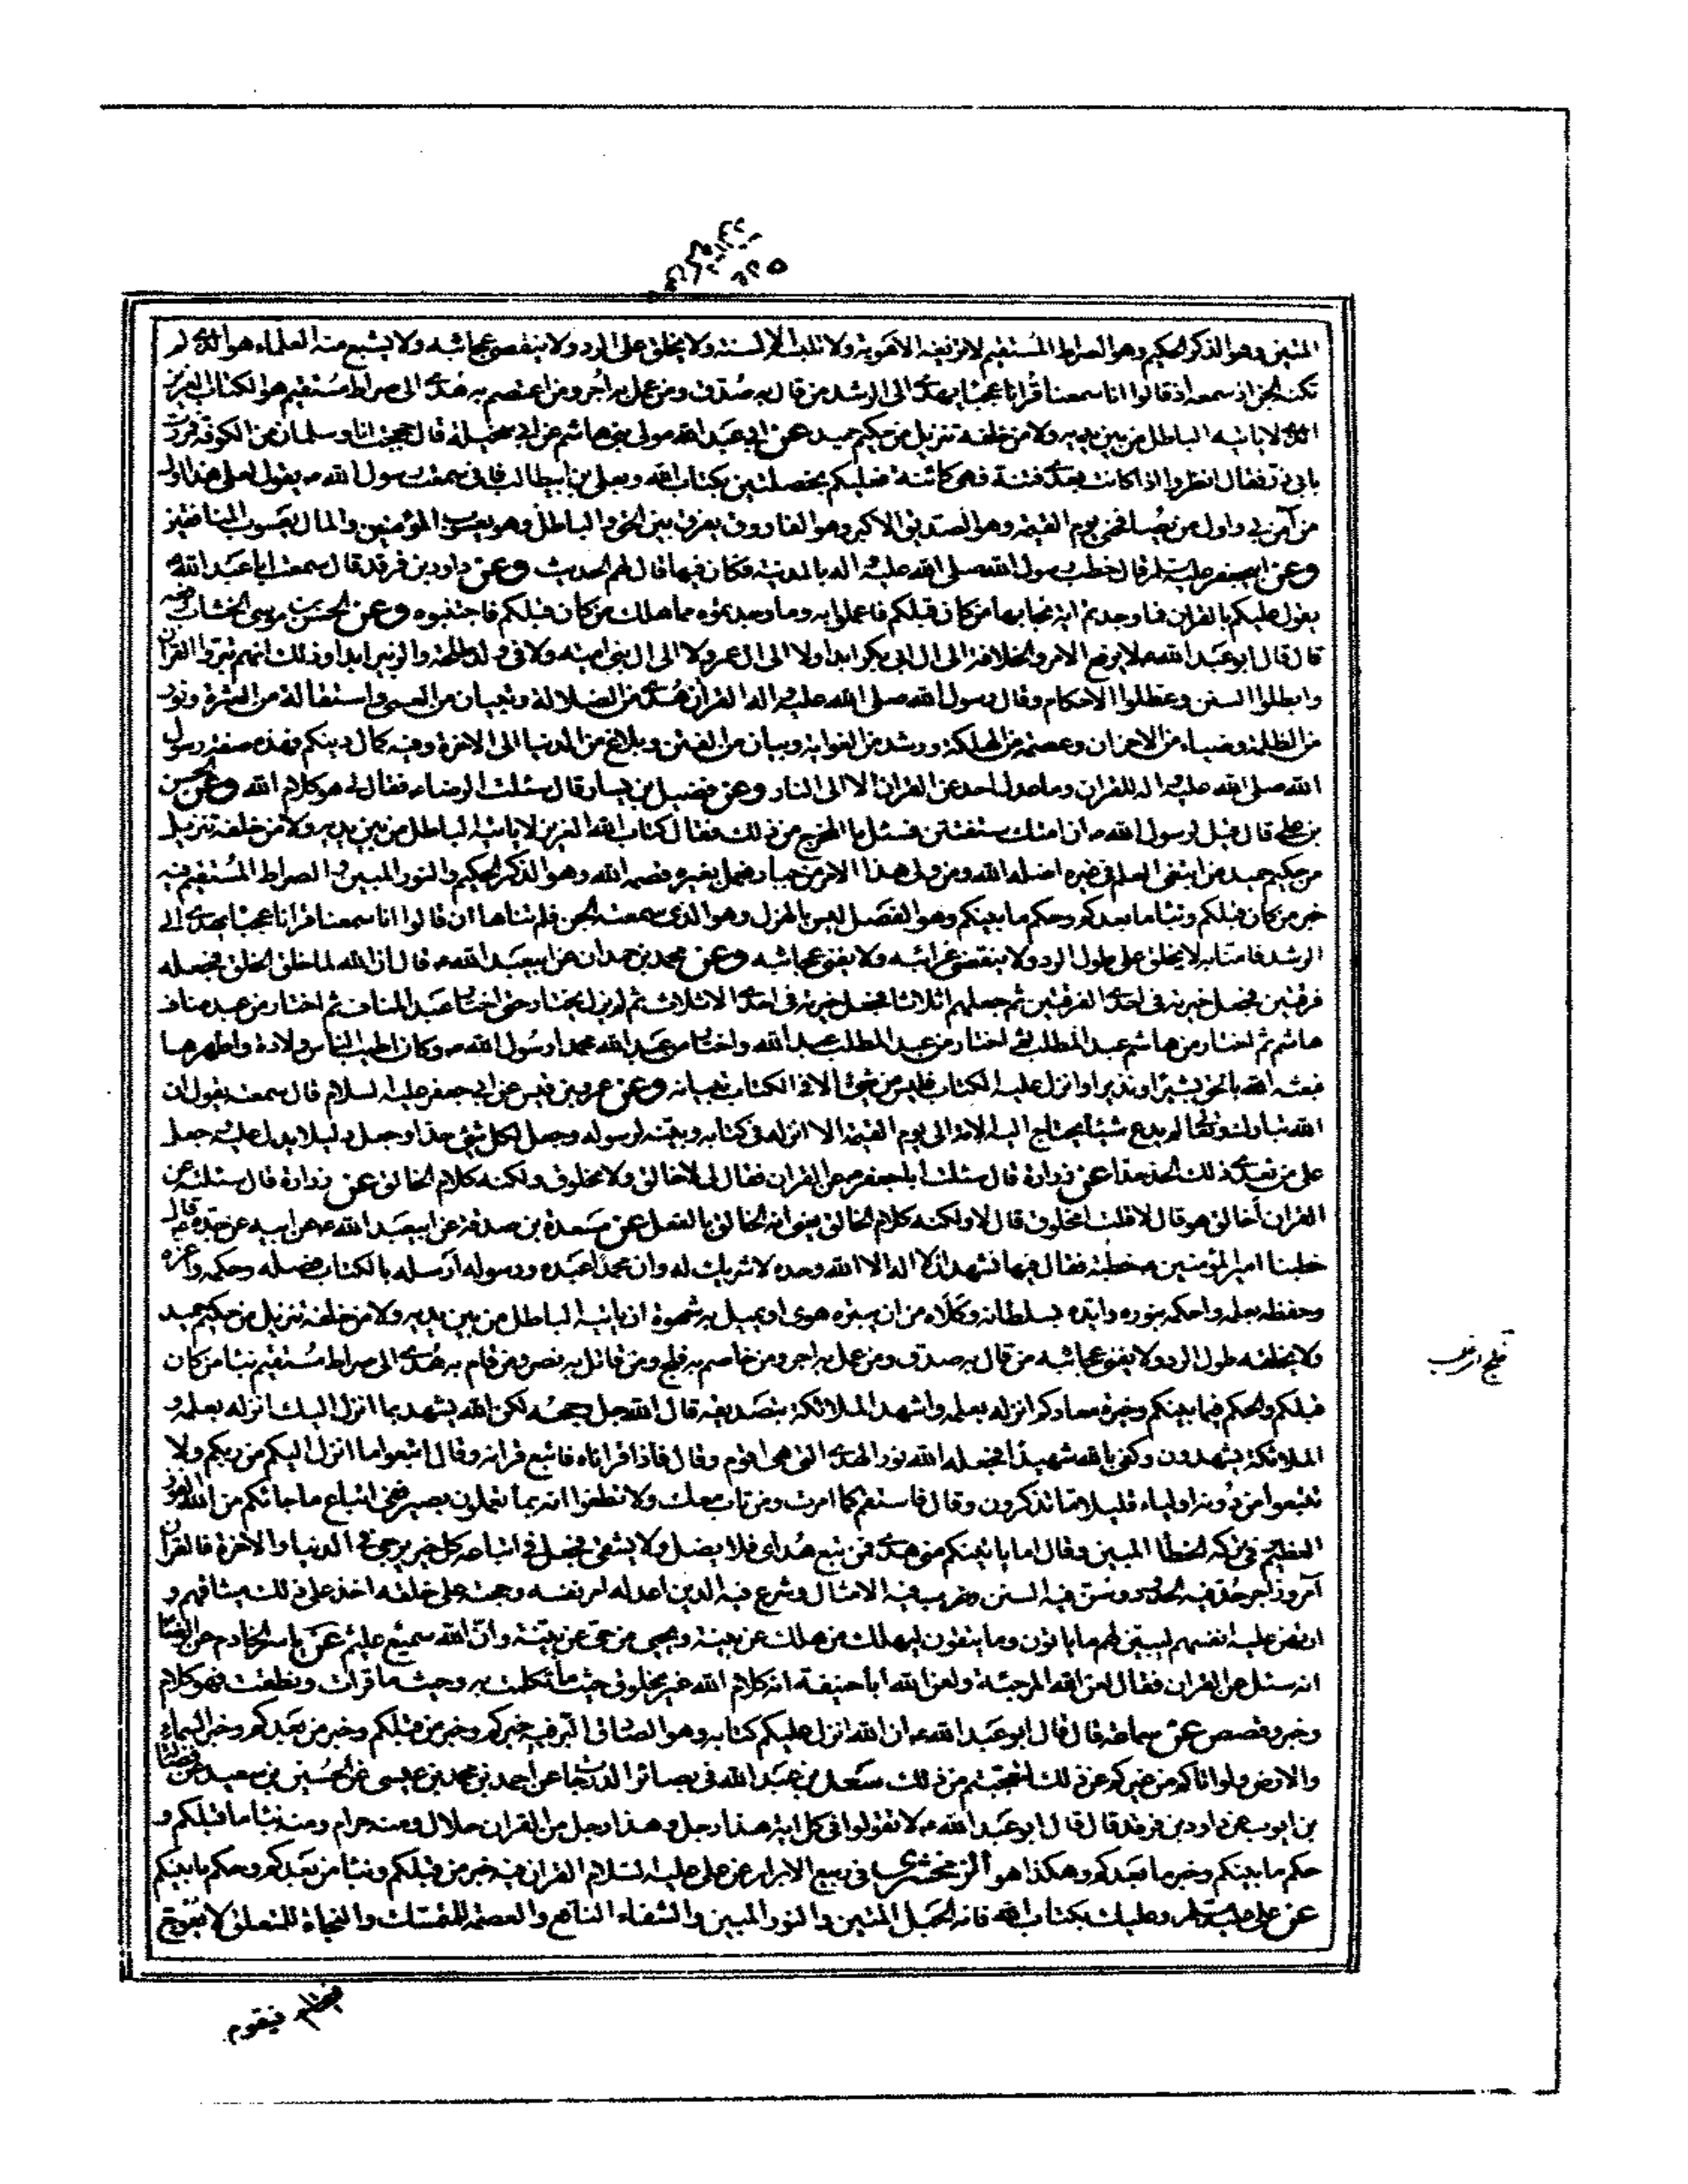 المتين وهو الذكر الحكيم وهو الصراط المستقيم لا تزيغه الاهوية ولا تلبسه الالسنة ولا يخلق على الرد ولا ينقضي عجائبه ولا يشبع منه العلماء هو الذى لم
تكنه الجن اذ سمعه اذ قالوا انا سمعنا قرانا عجبا يهدى الى الرشد من قال به صدق ومن عمل به اجر ومن اعتصم به هدى الى صراط مستقيم هو الكتاب العزيز
الذى لا ياتيه الباطل من بين يديه ولا من خلفه تنزيل من حكيم حميد عن ابي عبد الله مولى بني هاشم عن ابي سخيلة قال حججت انا وسلمان من الكوفة فمررت
بابي ذر فقال انظروا اذا كانت بعدى فتنة فهى كائنة فعليكم بخصلتين بكتاب الله وبعلى بن ابيطالب فانى سمعت رسول الله ص يقول لعلى هذا اول
من آمن بى واول من يصافحنى يوم القيمة وهو الصديق الاكبر وهو الفاروق يفرق بين الحق والباطل وهو يعسوب المؤمنين والمال يعسوب المنافقين
وعن ابيجعفر عليه السلم قال خطب رسول الله صلى الله عليه واله بالمدينة فكان فيما قال لهم الحديث وعن داود بن فرقد قال سمعت ابا عبد الله
يقول عليكم بالقران فما وجدتم اية نجا بها من كان قبلكم فاعملوا به وما وجدتموه مما هلك من كان قبلكم فاجتنبوه وعن الحسن بن موسى الخشاب رفعه
قال قال ابو عبد الله ع لا يرفع الامر والخلافة الى ال ابي بكر ابدا ولا الى ال عمر ولا الى ال بني امية ولا فى ولد طلحة والزبير ابدا وذلك انهم بتروا القران
وابطلوا السنن وعطلوا الاحكام وقال رسول الله صلى الله عليه واله القران هدى من الضلالة وتبيان من العمى واستقالة من العثرة ونور
من الظلمة وضياء من الاحزان وعصمة من الهلكة ورشد من الغواية وبيان من الفتن وبلاغ من الدنيا الى الاخرة وفيه كمال دينكم فهذه صفة رسول
الله صلى الله عليه واله للقران وما عدل احد عن القران الا الى النار وعن فضيل بن يسار قال سئلت الرضا ع فقال لى هو كلام الله وعن الحسن
بن على قال قيل لرسول الله ص ان امتك ستفتتن فسئل ما المخرج من ذلك فقال كتاب الله العزيز لا ياتيه الباطل من بين يديه ولا من خلفه تنزيل
من حكيم حميد من ابتغى العلم فى غيره اضله الله ومن ولى هذا الامر من جبار فعمل بغيره قصمه الله وهو الذكر الحكيم والنور المبين والصراط المستقيم فيه
خبر من كان قبلكم ونبا ما بعدكم وحكم ما بينكم وهو الفصل ليس بالهزل وهو الذى سمعته الجن فلم تناها ان قالوا انا سمعنا قرانا عجبا يهدى الى
الرشد فامنا به لا يخلق على طول الرد ولا ينقضى غرائبه ولا يفنى عجائبه وعن محمد بن حمدان عن ابيعبد الله ع قال ان الله لما خلق الخلق فجعله
فرقتين فجعل خيرته فى احدى الفرقتين ثم جعلهم اثلاثا فجعل خيرته فى احدى الاثلاث ثم لم يزل يختار حتى اختار عبد المناف ثم اختار من عبد مناف
هاشم ثم اختار من هاشم عبد المطلب ثم اختار من عبد المطلب عبد الله واختار من عبد الله محمدا رسول الله ص وكان اطيب الناس ولادة واطهرها
فبعثه الله بالحق بشيرا ونذيرا وانزل عليه الكتاب فليس من شئ الا فى الكتاب تبيانه وعن عمر بن قيس عن ابي جعفر عليه السلام قال سمعته يقول ان
الله تبارك وتعالى لم يدع شيئا يحتاج اليه الامة الى يوم القيمة الا انزله فى كتابه وبينه لرسوله وجعل لكل شئ حدا وجعل دليلا يدل عليه وجعل
على من تعدى ذلك الحد حدا عن زرارة قال سئلت ابا جعفر ع عن القران فقال لى لا خالق ولا مخلوق ولكنه كلام الخالق عن زرارة قال سئلته عن
القران أخالق هو قال لا قلت امخلوق قال لا ولكنه كلام الخالق يعنى انه الخالق بالفعل عن مسعدة بن صدقة عن ابيعبد الله ع عن ابيه عن جده ع قال
خطبنا امير المؤمنين ع خطبة فقال فيها نشهد ان لا اله الا الله وحده لا شريك له وان محمدا عبده ورسوله ارسله بالكتاب فصله وحكمه واعزه
وحفظه بعلمه واحكمه بنوره وايده بسلطانه وكلاه من ان يبتزه هوى او يميل به شهوة او ياتيه الباطل من بين يديه ولا من خلفه تنزيل من حكيم حميد
ولا يخلقه طول الرد ولا يفنى عجائبه من قال به صدق ومن عمل به اجر ومن خاصم به فلج ومن قاتل به نصر ومن قام به هدى الى صراط مستقيم نبا من كان
قبلكم والحكم فيما بينكم وخبرة معادكم انزله بعلمه واشهد الملائكة بتصديقه قال الله جل وجهه لكن الله يشهد بما انزل اليك انزله بعلمه و
الملائكة يشهدون وكفى بالله شهيدا فجعله الله نور الهدى التى هى اقوم وقال فاذا قراناه فاتبع قرانه وقال اتبعوا ما انزل اليكم من ربكم ولا
تتبعوا من دونه اولياء قليلا ما تذكرون وقال فاستقم كما امرت ومن تاب معك ولا تطغوا انه بما تعملون بصير ففى اتباع ما جائكم من الله الفوز
العظيم وفى تركه الخطا المبين وقال اما ياتينكم منى هدى فمن تبع هداى فلا يضل ولا يشقى فجعل فى اتباعه كل خير يرجى فى الدنيا والاخرة فالقران
آمر وزاجر حد فيه الحدود وسن فيه السنن وضرب فيه الامثال وشرع فيه الدين اعذارا من نفسه وحجة على خلقه اخذ على ذلك ميثاقهم و
ارتهن عليه انفسهم ليبين لهم ما ياتون وما يتقون ليهلك من هلك عن بينة ويحيى من حى عن بينة وان الله سميع عليم عن ياسر الخادم عن الرضا
انه سئل عن القران فقال لعن الله المرجئة ولعن الله أبا حنيفة انه كلام الله غير مخلوق حيث ما تكلمت به وحيث ما قرات ونطقت فهو كلام
وخبر وقصص عن سماعة قال قال ابو عبد الله ع ان الله انزل عليكم كتابه وهو الصادق البر فيه خبركم وخبر من قبلكم وخبر من بعدكم وخبر السماء
والارض ولو اتاكم من يخبركم عن ذلك لتعجبتم من ذلك سعد بن عبد الله فى بصائر الدرجات عن احمد بن محمد بن عيسى عن الحسين بن سعيد عن فضالة
بن ايوب عن داود بن فرقد قال قال ابو عبد الله ع لا تقولوا فى كل اية هذا رجل وهذا رجل من القران حلال ومنه حرام ومنه نبا ما قبلكم و
حكم ما بينكم وخبر ما بعدكم وهكذا هو الزمخشرى فى ربيع الابرار عن على عليه السلام القران فيه خبر من قبلكم ونبا من بعدكم وحكم ما بينكم
عن على عليه السلم وعليك بكتاب الله فانه الحبل المتين والنور المبين والشفاء النافع والعصمة للمتمسك والنجاة للمتعلق لا يعوج
فيقوم